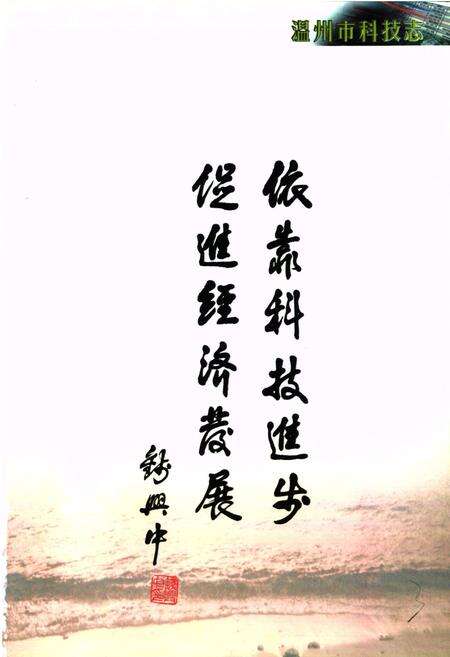 温州市科技志
依靠科技進步
促進經濟發展
錢興中